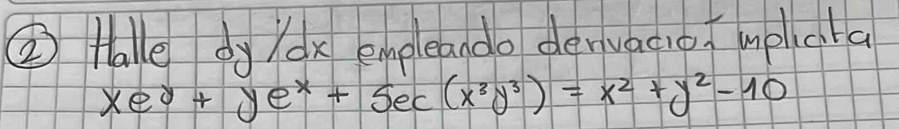 ② Halle dy/dx empleando derivación implicita
xe^y + ye^x + Sec(x³y³) = x² + y² - 10